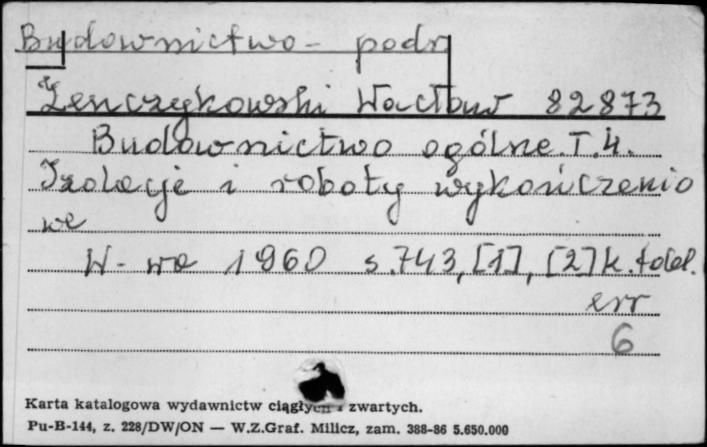 Budownictwo - podr
Żenczykowski Wacław 82873
Budownictwo ogólne. T. 4.
Izolacje i roboty wykończenio
we
W-wa 1960 s. 743, [1], [2] k. tabl.
err
6
Karta katalogowa wydawnictw ciągłych i zwartych.
Pu-B-144, z. 228/DW/ON — W.Z.Graf. Milicz, zam. 388-86 5.650.000